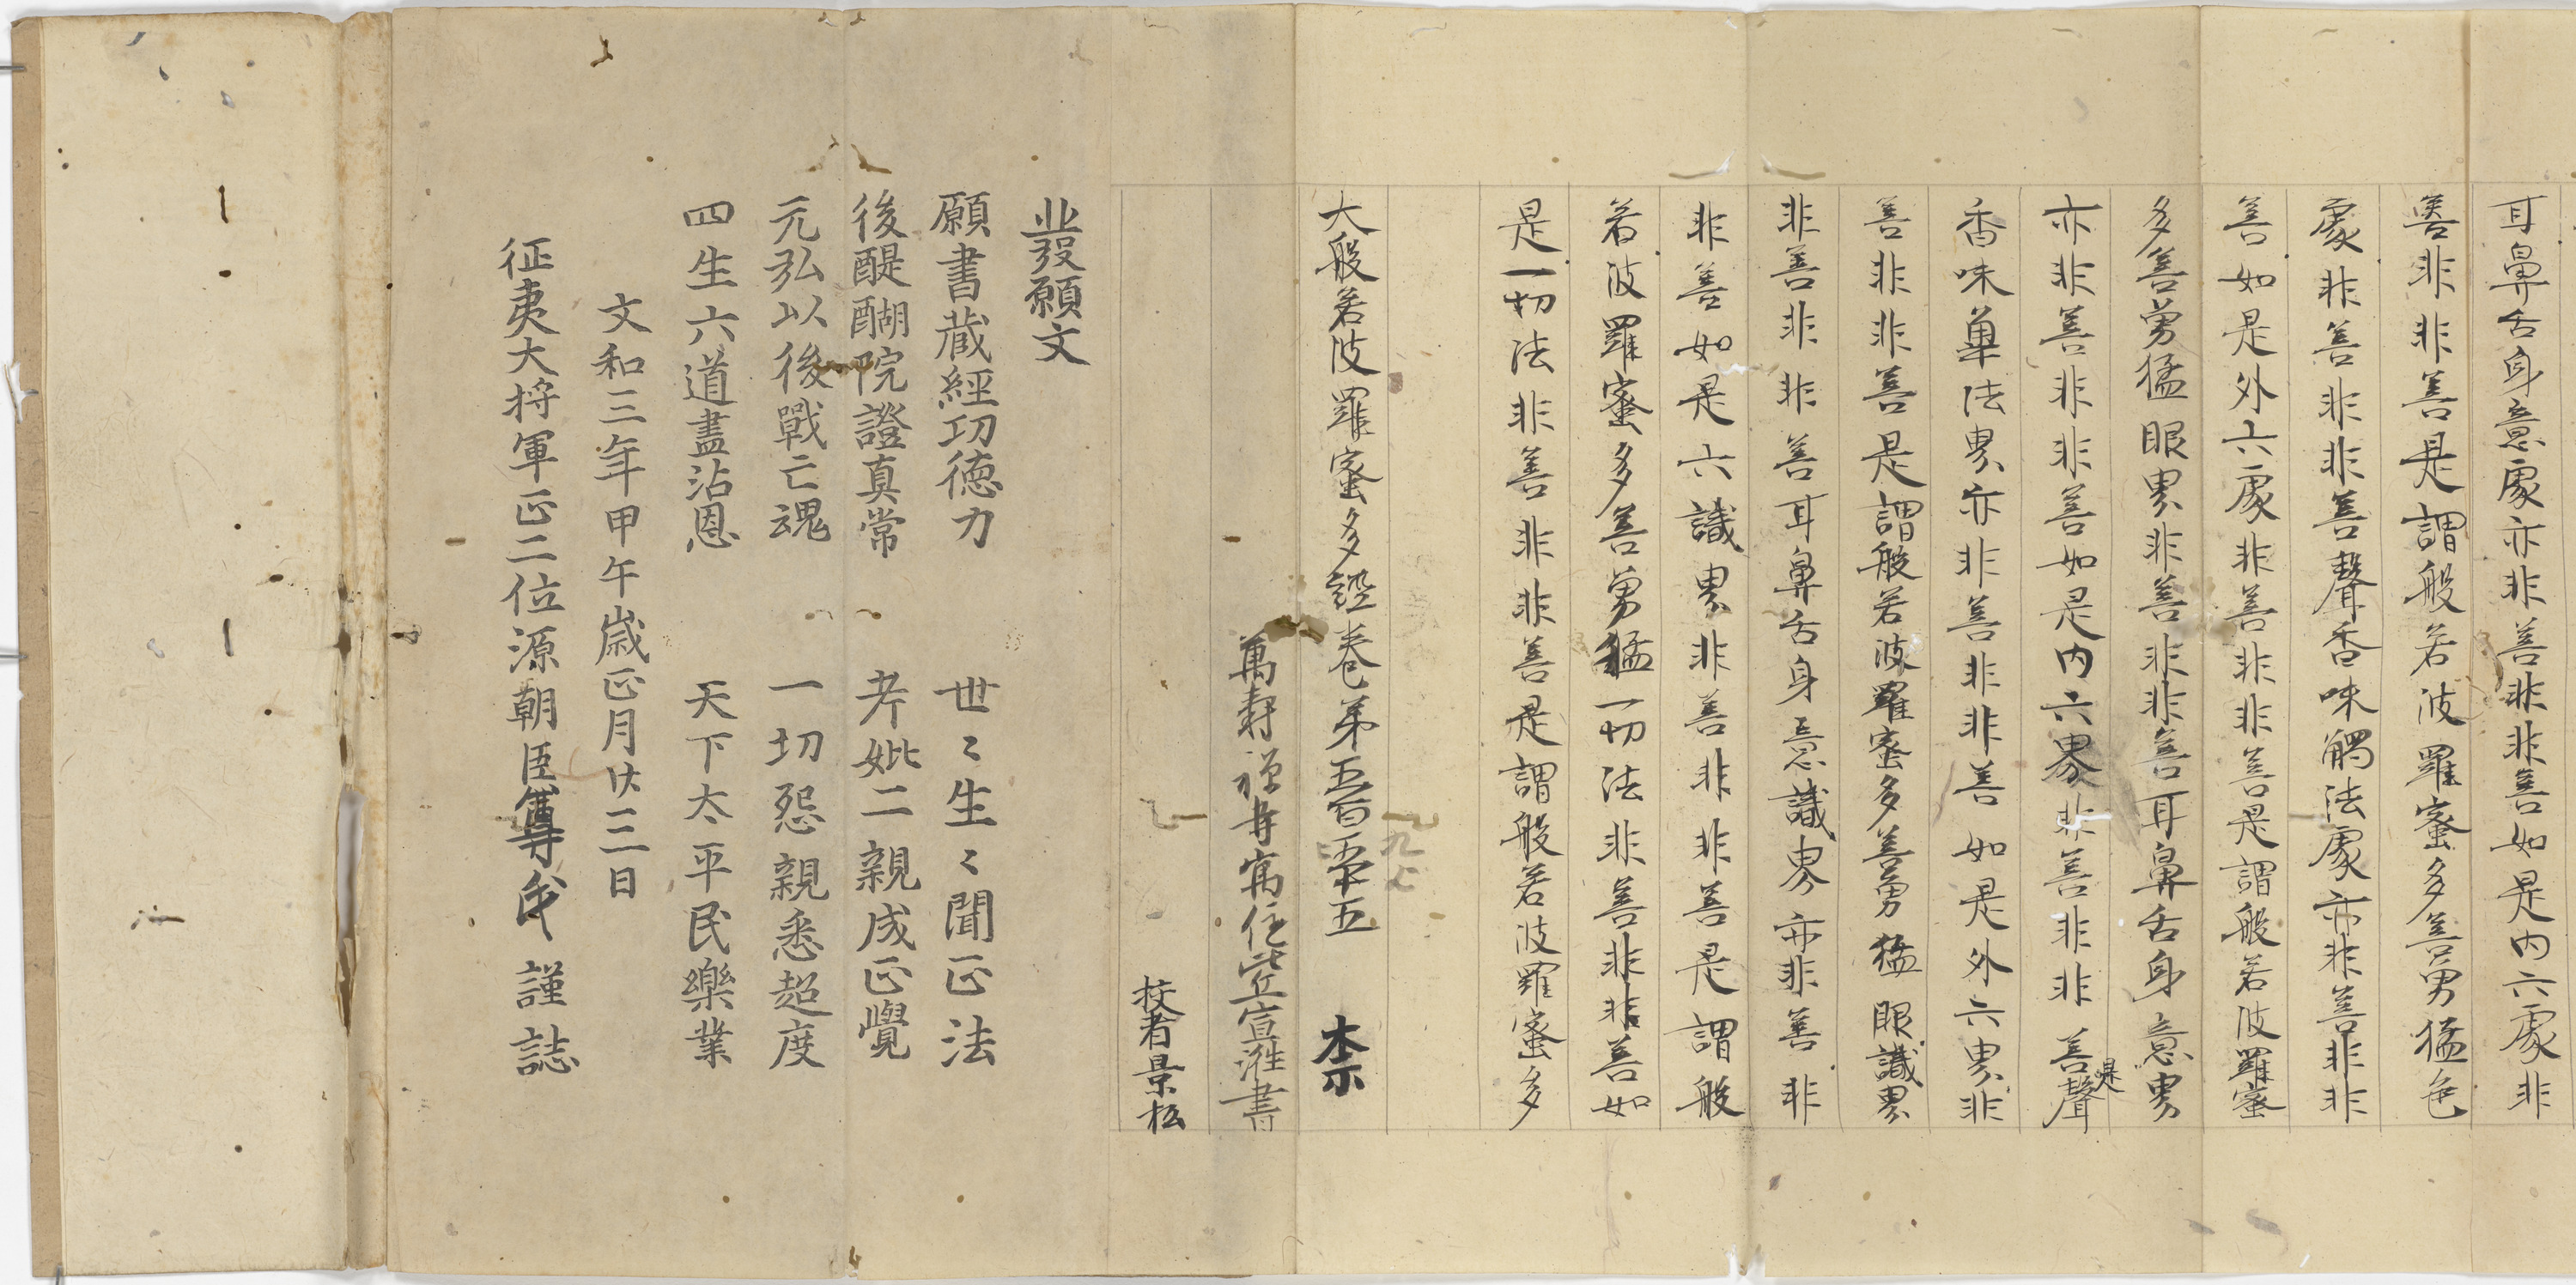 耳鼻舌身意處亦非善非非善如是內六處非
善非非善是謂般若波羅蜜多善勇猛色
處非善非非善聲香味觸法處亦非善非非
善如是外六處非善非非善是謂般若波羅蜜
多善勇猛眼界非善非非善耳鼻舌身意界
亦非善非非善如是內六界非善非非善聲
是
香味單法界亦非善非非善如是外六界非
善非非善是謂般若波羅蜜多善勇猛眼識界
非善非非善耳鼻舌身意識界亦非善非
非善如是六識界非善非非善是謂般
若波羅蜜多善勇猛一切法非善非非善如
是一切法非善非非善是謂般若波羅蜜多
大般若波羅蜜多經卷第五百零五 本示
九七
萬壽禪寺寓住苾蒭宣溎書
挍者景松
發願文
願書蔵經功徳力 世〻生〻聞正法
後醍醐院證真常 考妣二親成正覺
元弘以後戰亡魂 一切怨親悉超度
四生六道盡沾恩 天下太平民樂業
文和三年甲午歳正月廿三日
征夷大将軍正二位源朝臣尊氏 謹誌